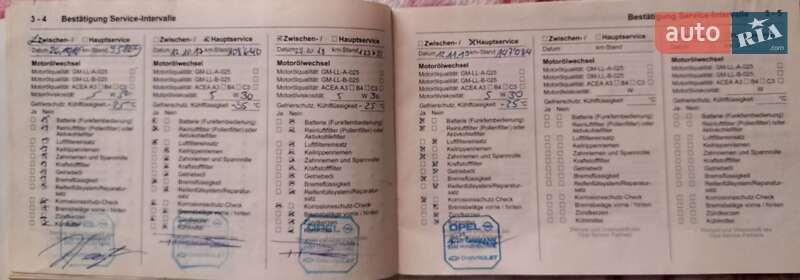 3 - 4 Bestätigung Service-Intervalle
Zwischen- / Hauptservice
Datum km-Stand
Motorölwechsel
Motorölqualität: GM-LL-A-025
Motorölqualität: GM-LL-B-025
Motorölqualität: ACEA A3 B4 C3
Motorölviskosität: 5 W 30
Gefrierschutz, Kühlflüssigkeit -25 °C
Ja Nein
Batterie (Funkfernbedienung)
Reinluftfilter (Pollenfilter) oder
Aktivkohlefilter
Luftfiltereinsatz
Keilrippenriemen
Zahnriemen und Spannrolle
Kraftstofffilter
Getriebeöl
Bremsflüssigkeit
Reifenfüllsystem/Reparatur-
satz
Korrosionsschutz-Check
Bremsbeläge vorne / hinten
Zündkerzen
Kühlmittel
OPEL
CHEVROLET
Zwischen- / Hauptservice
Datum km-Stand
Motorölwechsel
Motorölqualität: GM-LL-A-025
Motorölqualität: GM-LL-B-025
Motorölqualität: ACEA A3 B4 C3
Motorölviskosität: 5 W 30
Gefrierschutz, Kühlflüssigkeit -35 °C
Ja Nein
Batterie (Funkfernbedienung)
Reinluftfilter (Pollenfilter) oder
Aktivkohlefilter
Luftfiltereinsatz
Keilrippenriemen
Zahnriemen und Spannrolle
Kraftstofffilter
Getriebeöl
Bremsflüssigkeit
Reifenfüllsystem/Reparatur-
satz
Korrosionsschutz-Check
Bremsbeläge vorne / hinten
Zündkerzen
Kühlmittel
OPEL
CHEVROLET
Zwischen- / Hauptservice
Datum km-Stand
Motorölwechsel
Motorölqualität: GM-LL-A-025
Motorölqualität: GM-LL-B-025
Motorölqualität: ACEA A3 B4 C3
Motorölviskosität: 5 W 30
Gefrierschutz, Kühlflüssigkeit -25 °C
Ja Nein
Batterie (Funkfernbedienung)
Reinluftfilter (Pollenfilter) oder
Aktivkohlefilter
Luftfiltereinsatz
Keilrippenriemen
Zahnriemen und Spannrolle
Kraftstofffilter
Getriebeöl
Bremsflüssigkeit
Reifenfüllsystem/Reparatur-
satz
Korrosionsschutz-Check
Bremsbeläge vorne / hinten
Zündkerzen
Kühlmittel
OPEL
CHEVROLET
Bestätigung Service-Intervalle 3 - 5
auto RIA.com
Zwischen- / Hauptservice
Datum 12.11.19 km-Stand 147084
Motorölwechsel
Motorölqualität: GM-LL-A-025
Motorölqualität: GM-LL-B-025
Motorölqualität: ACEA A3 B4 C3
Motorölviskosität: 5 W 30
Gefrierschutz, Kühlflüssigkeit -25 °C
Ja Nein
Batterie (Funkfernbedienung)
Reinluftfilter (Pollenfilter) oder
Aktivkohlefilter
Luftfiltereinsatz
Keilrippenriemen
Zahnriemen und Spannrolle
Kraftstofffilter
Getriebeöl
Bremsflüssigkeit
Reifenfüllsystem/Reparatur-
satz
Korrosionsschutz-Check
Bremsbeläge vorne / hinten
Zündkerzen
Kühlmittel
OPEL
CHEVROLET
Zwischen- / Hauptservice
Datum km-Stand
Motorölwechsel
Motorölqualität: GM-LL-A-025
Motorölqualität: GM-LL-B-025
Motorölqualität: ACEA A3 B4 C3
Motorölviskosität: W
Gefrierschutz, Kühlflüssigkeit °C
Ja Nein
Batterie (Funkfernbedienung)
Reinluftfilter (Pollenfilter) oder
Aktivkohlefilter
Luftfiltereinsatz
Keilrippenriemen
Zahnriemen und Spannrolle
Kraftstofffilter
Getriebeöl
Bremsflüssigkeit
Reifenfüllsystem/Reparatur-
satz
Korrosionsschutz-Check
Bremsbeläge vorne / hinten
Zündkerzen
Kühlmittel
Zwischen- /
Datum
Motorölwechsel
Motorölqualität: GM-LL-A-025
Motorölqualität: GM-LL-B-025
Motorölqualität: ACEA A3 B4 C3
Motorölviskosität: W
Gefrierschutz, Kühlflüssigkeit °C
Ja Nein
Batterie (Funkfernbedienung)
Reinluftfilter (Pollenfilter) oder
Aktivkohlefilter
Luftfiltereinsatz
Keilrippenriemen
Zahnriemen und Spannrolle
Kraftstofffilter
Getriebeöl
Bremsflüssigkeit
Reifenfüllsystem/Reparatur-
satz
Korrosionsschutz-Check
Bremsbeläge vorne / hinten
Zündkerzen
Kühlmittel